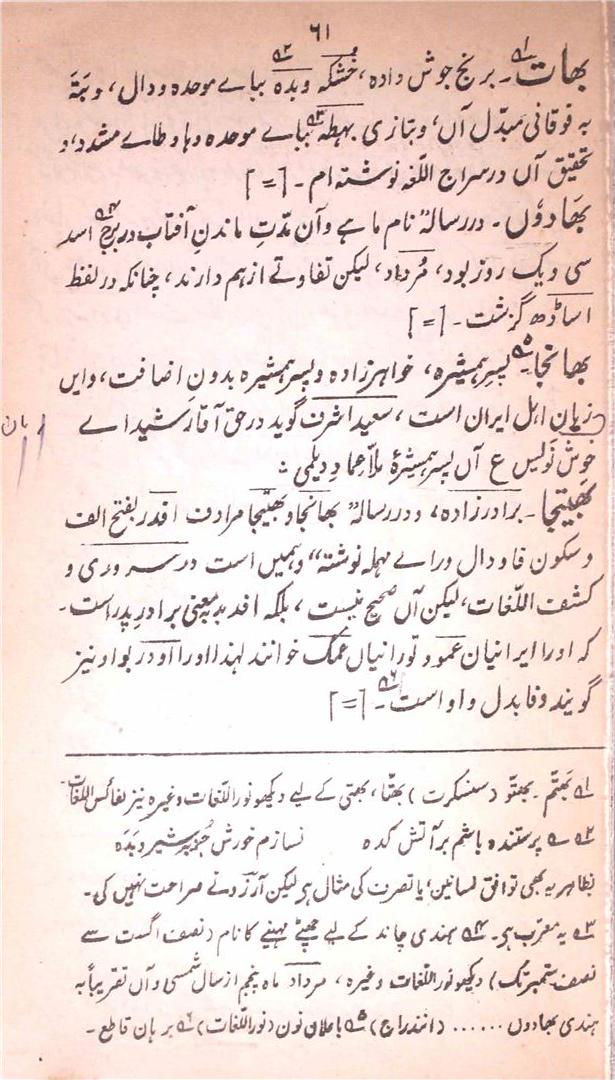 ۶۱
بھات۔ برنج جوش داده، خُشکہ وبدہ بباے موحده ودال، وبتَہ
بہ فوقانی مبدّل آں، وبتازی بہطہ بباے موحده وہا وطاے مشدد، و
تحقیق آں در سراج اللّغہ نوشتہ ام۔ [=]
بھادوں۔ در رسالۂ نام ماہے وآن مدّتِ ماندنِ آفتاب در برج اسد
سی ویک روز بود، مُرداد، لیکن تفاوتے از ہم دارند، چنانکہ در لفظ
اساڑھ گزشت۔ [=]
بھانجا۔ پسرِ ہمشیره، خواہرزاده وپسر ہمشیره بدونِ اضافت، وایں
زبان اہل ایران است، سعید اشرف گوید در حق آقا رشیداے
خوش نویس ع آں پسر ہمشیرۂ ملّا عماد دیلمی :
بھتیجا۔ برادرزاده، ودر رسالۂ ”بھانجا وبھتیجا مرادف افدر بفتح الف
وسکون فا ودال وراے مہملہ نوشتہ“ وہمیں است در سروری و
کشف اللّغات، لیکن آں صحیح نیست، بلکہ افدر بمعنی برادرِ پدر است۔
کہ اورا ایرانیان عمو وتورانیاں عمک خوانند لہٰذا اورا اودر بواو نیز
گویند وفا بدل واو است۔ [=]
بان
۱؎ بَھتَم۔ بھتو (سنسکرت) بھتّا، بھتی کے لیے دیکھو نوراللّغات وغیره نیز نفائس اللغات
۲؎ پرستنده باشم بر آتش کده نسازم خورش جُز بہ شیر وبَدَه
بظاہر یہ بھی توافقِ لسانین، یا تصرف کی مثال ہی لیکن آرزو نے صراحت نہیں کی۔
۳؎ یہ معرب ہی۔ ۴؎ ہندی چاند کے لیے چھٹے مہینے کا نام (نصف اگست سے
نصف ستمبر تک) دیکھو نوراللّغات وغیره، مرداد ماه پنجم از سال شمسی وآں تقریباً بہ
ہندی بھادوں ...... (انندراج) ۵؎ باعلانِ نون (نوراللّغات) ۶؎ برہان قاطع۔